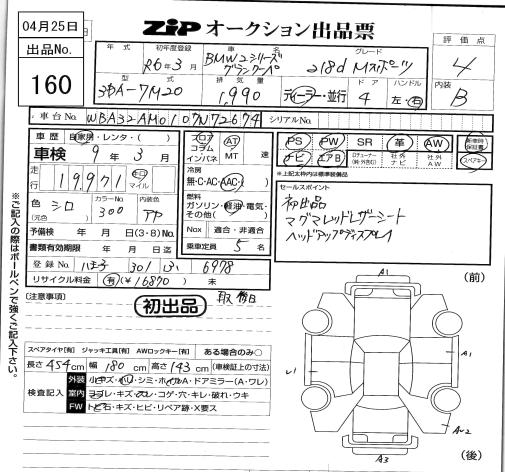 04月25日
出品No.
160
ZIP オークション出品票
年式
初年度登録
車名
グレード
評価点
R6年3月
BMW 2シリーズ
グランクーペ
218d Mスポーツ
4
型式
排気量
ドア
ハンドル
内装
3BA-7M20
1,990
ディーラー・並行
4
左・右
B
車台No.
WBA32AM0107N72674
シリアルNo.
車歴
自家用・レンタ・( )
フロア
コラム
インパネ
AT
MT
速
PS
PW
SR
革
AW
ナビ
エアB
社外ナビ
社外AW
スペアキー
車検
9年3月
※上記太枠内は標準装備品
走行
19,971
キロ
マイル
冷房
無・C・AC・AAC
セールスポイント
初出品
マグマレッドレザーシート
ヘッドアップディスプレイ
色
(元色)
シロ
カラーNo.
300
内装
燃料
ガソリン・軽油・電気・
その他( )
予備検
年 月 日(3・8)No.
Nox
適合・非適合
書類有効期限
年 月 日迄
乗車定員
5名
登録No.
八王子 301 6978
リサイクル料金
有(¥16870) 未
[注意事項]
初出品
(前)
A1
A1
A-2
A3
(後)
スペアタイヤ[有] ジャッキ工具[有] AWロックキー[有] ある場合のみ○
長さ454cm 幅180cm 高さ143cm (車検証上の寸法)
検査記入
外装
小キズ・凹・シミ・ホイルA・ドアミラー(A・ワレ)
室内
ヨゴレ・キズ・スレ・コゲ・穴・キレ・破れ・ウキ
FW
トビ石・キズ・ヒビ・リペア跡・X要ス
※ご記入の際はボールペンで強くご記入下さい。